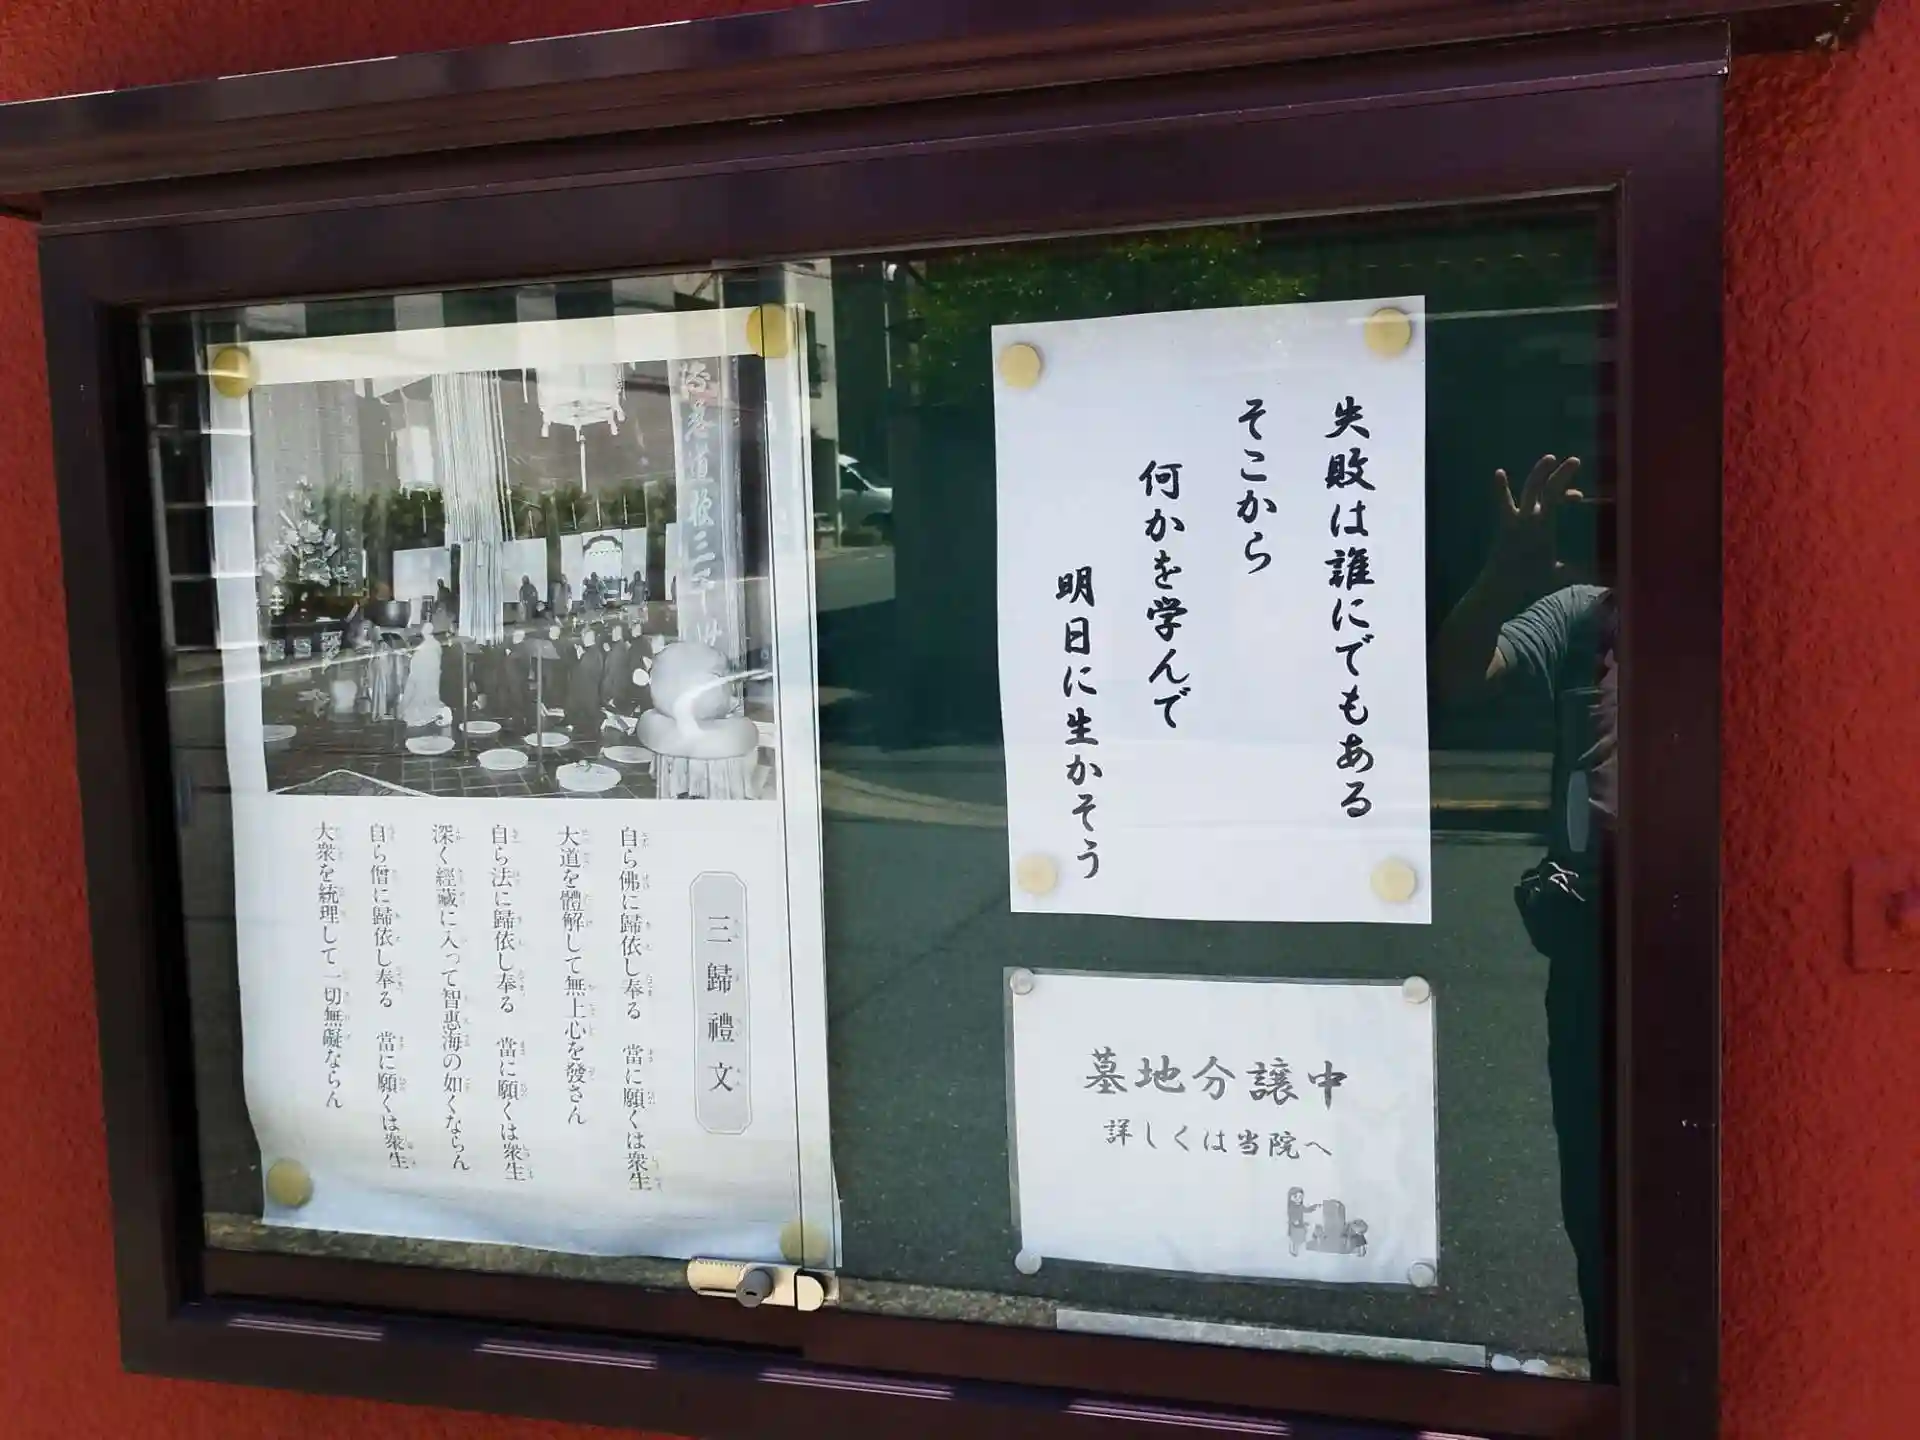 失敗は誰にでもある
そこから
何かを学んで
明日に生かそう
墓地分譲中
詳しくは当院へ
三歸禮文
自ら佛に歸依し奉る 當に願くは衆生
大道を體解して無上心を發さん
自ら法に歸依し奉る 當に願くは衆生
深く經藏に入って智惠海の如くならん
自ら僧に歸依し奉る 當に願くは衆生
大衆を統理して一切無礙ならん